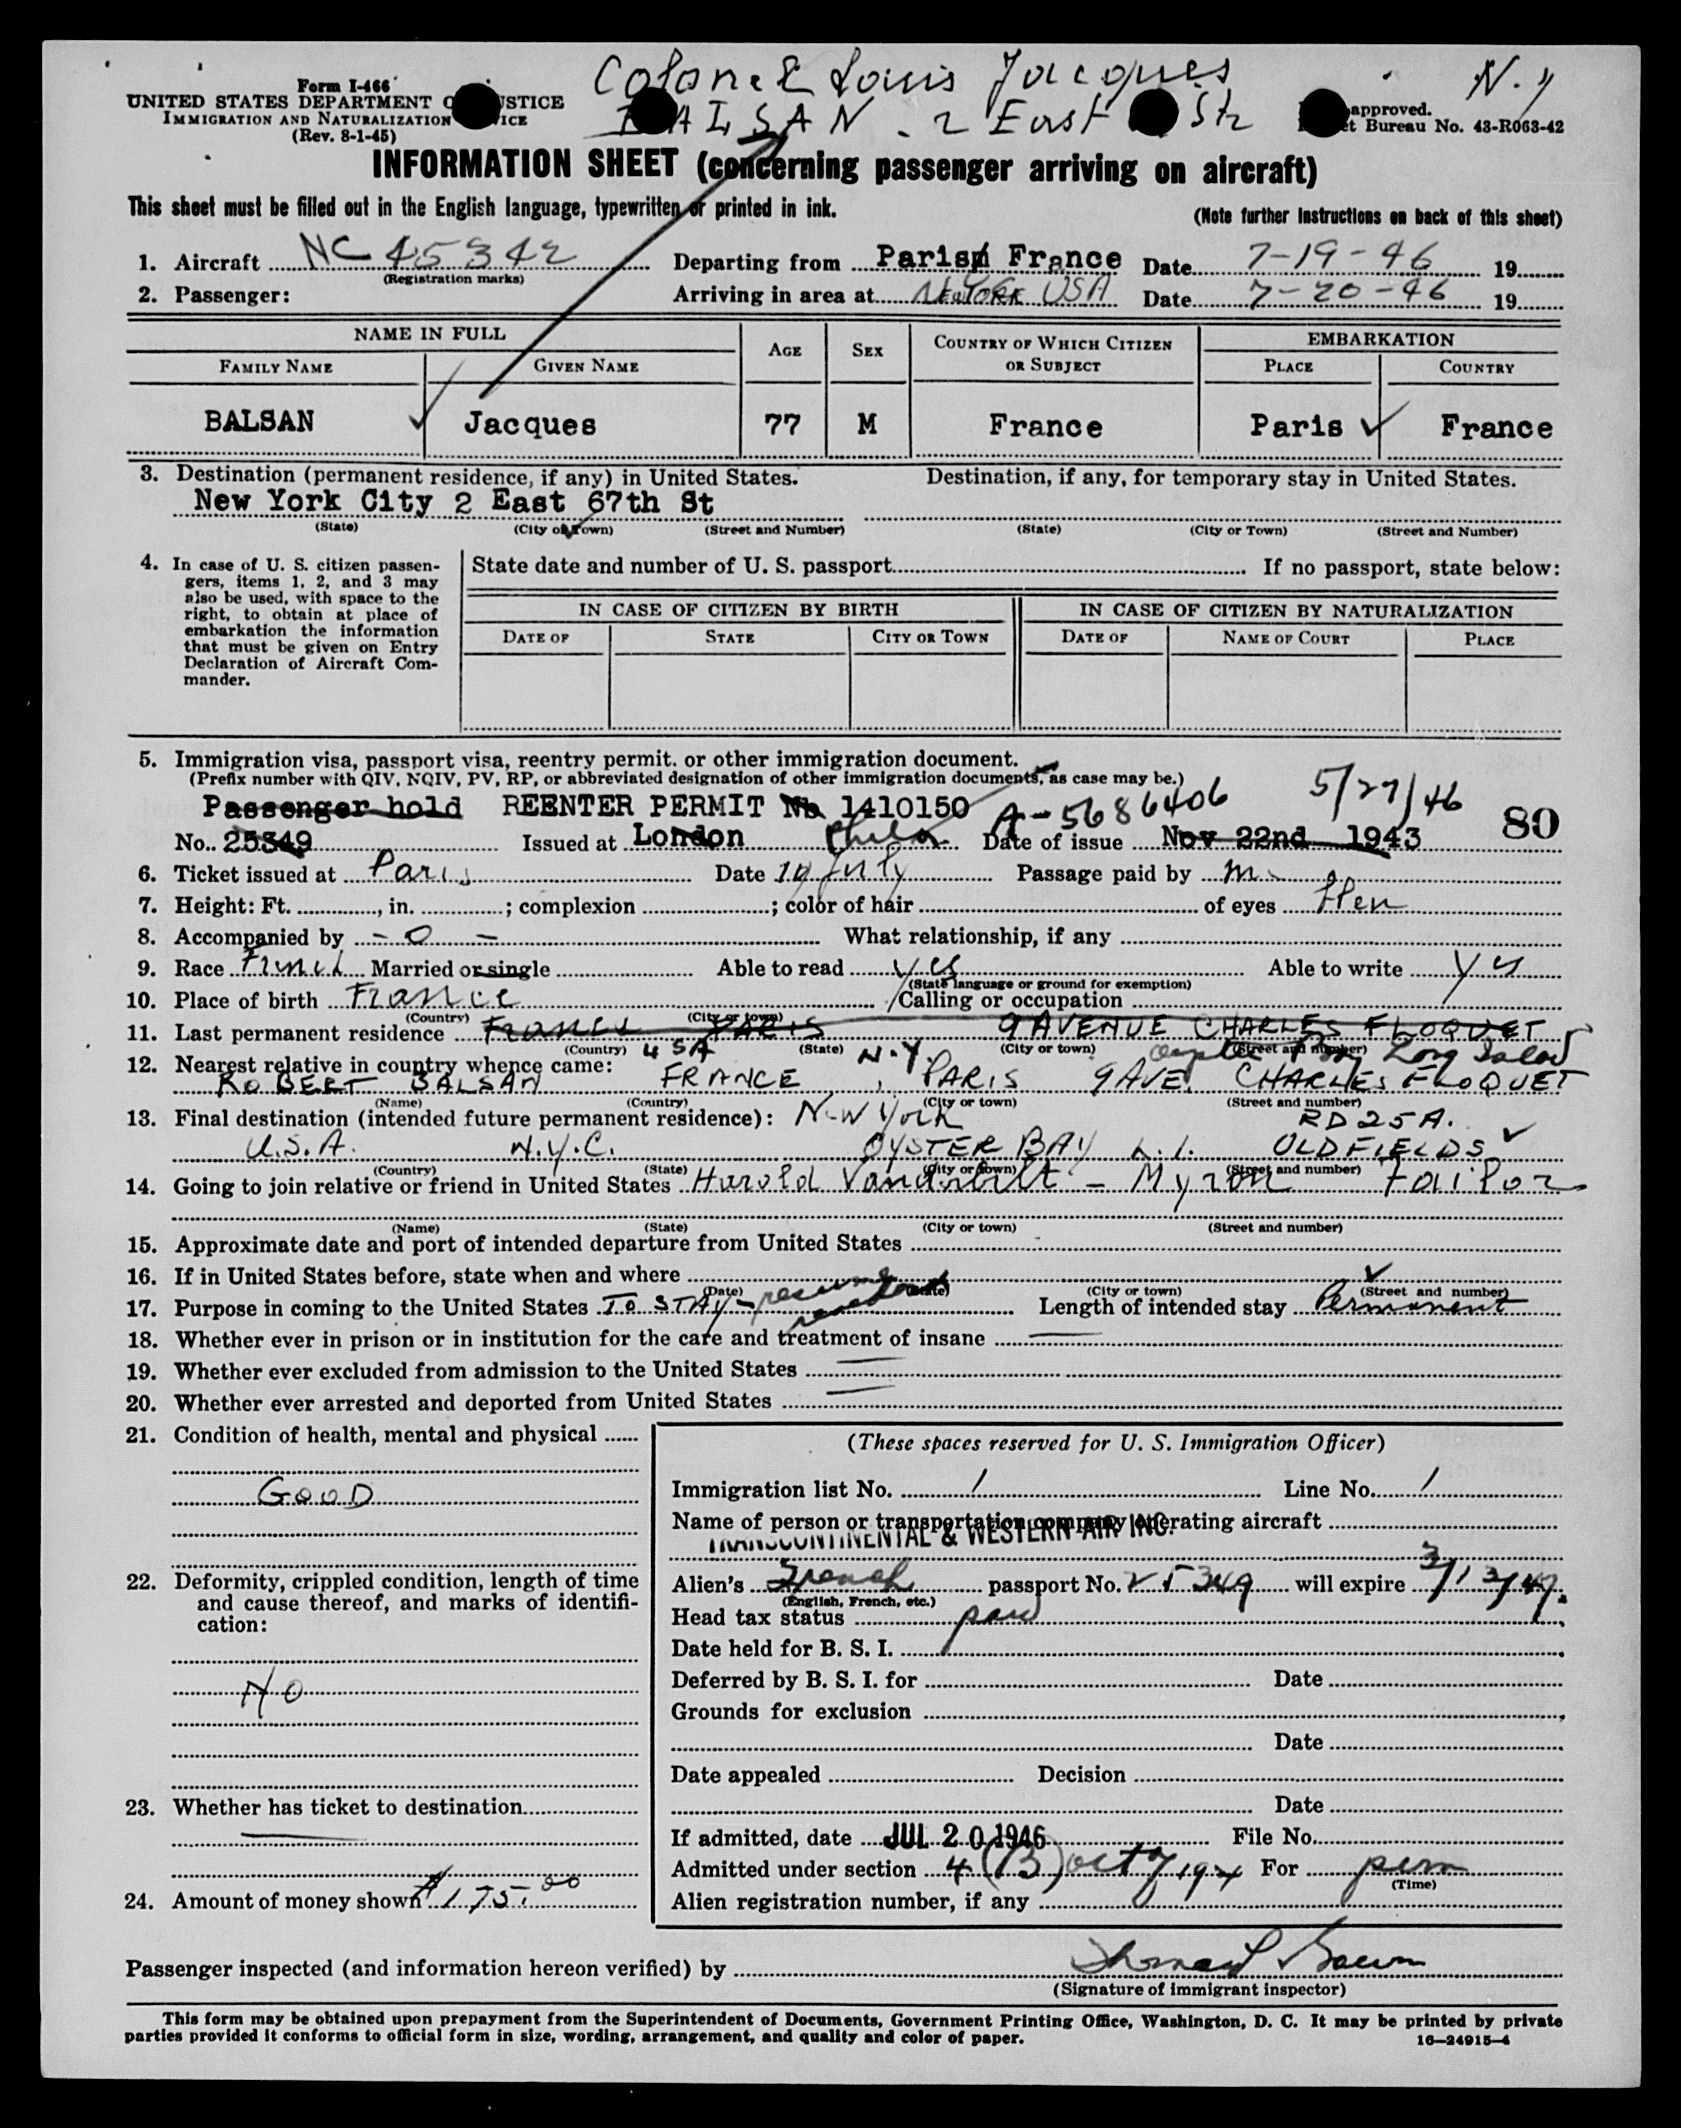 Colonel Louis Jacques
BALSAN. 2 East St N.Y
Form I-466
UNITED STATES DEPARTMENT OF JUSTICE
IMMIGRATION AND NATURALIZATION SERVICE
(Rev. 8-1-45)
approved.
Bureau No. 43-R063-42
INFORMATION SHEET (concerning passenger arriving on aircraft)
This sheet must be filled out in the English language, typewritten or printed in ink.
(Note further instructions on back of this sheet)
1. Aircraft NC 45342 Departing from Paris France Date 7-19-46 19
(Registration marks)
2. Passenger: Arriving in area at New York USA Date 7-20-46 19
NAME IN FULL AGE SEX COUNTRY OF WHICH CITIZEN OR SUBJECT EMBARKATION
FAMILY NAME GIVEN NAME PLACE COUNTRY
BALSAN Jacques 77 M France Paris France
3. Destination (permanent residence, if any) in United States. Destination, if any, for temporary stay in United States.
New York City 2 East 67th St
(State) (City or Town) (Street and Number) (State) (City or Town) (Street and Number)
4. In case of U. S. citizen passen-
gers, items 1, 2, and 3 may
also be used, with space to the
right, to obtain at place of
embarkation the information
that must be given on Entry
Declaration of Aircraft Com-
mander.
State date and number of U. S. passport If no passport, state below:
IN CASE OF CITIZEN BY BIRTH IN CASE OF CITIZEN BY NATURALIZATION
DATE OF STATE CITY OR TOWN DATE OF NAME OF COURT PLACE
5. Immigration visa, passport visa, reentry permit. or other immigration document.
(Prefix number with QIV, NQIV, PV, RP, or abbreviated designation of other immigration documents, as case may be.)
Passenger hold REENTER PERMIT No 1410150 A-5686406 5/27/46 80
No. 25349 Issued at London Phila Date of issue Nov 22nd 1943
6. Ticket issued at Paris Date 10 July Passage paid by
7. Height: Ft. , in. ; complexion ; color of hair of eyes
8. Accompanied by - 0 - What relationship, if any
9. Race French Married or single Able to read yes Able to write yes
(State language or ground for exemption)
10. Place of birth France Calling or occupation
(Country) (City or town)
11. Last permanent residence France PARIS 9 AVENUE CHARLES FLOQUET
(Country) USA (State) N.Y. (City or town) Oyster Bay (Street and number) Long Island
12. Nearest relative in country whence came:
ROBERT BALSAN FRANCE, PARIS 9 AVE. CHARLES FLOQUET
(Name) (Country) (City or town) (Street and number)
13. Final destination (intended future permanent residence): New York RD 25A.
U.S.A. N.Y.C. OYSTER BAY L.I. OLDFIELDS
(Country) (State) (City or town) (Street and number)
14. Going to join relative or friend in United States Harold Vanderbilt - Myron
(Name) (State) (City or town) (Street and number)
15. Approximate date and port of intended departure from United States
16. If in United States before, state when and where
(Date) (State) (City or town) (Street and number)
17. Purpose in coming to the United States TO STAY - resume residence Length of intended stay Permanent
18. Whether ever in prison or in institution for the care and treatment of insane
19. Whether ever excluded from admission to the United States
20. Whether ever arrested and deported from United States
21. Condition of health, mental and physical
GOOD
22. Deformity, crippled condition, length of time
and cause thereof, and marks of identifi-
cation:
NO
23. Whether has ticket to destination
24. Amount of money shown $175.00
(These spaces reserved for U. S. Immigration Officer)
Immigration list No. 1 Line No. 1
Name of person or transportation company operating aircraft
TRANSCONTINENTAL & WESTERN AIR INC.
Alien's French passport No. 25349 will expire 3/13/47.
(English, French, etc.)
Head tax status paid
Date held for B. S. I.
Deferred by B. S. I. for Date
Grounds for exclusion
Date
Date appealed Decision
Date
If admitted, date JUL 20 1946 File No.
Admitted under section 4 (B) For perm
(Time)
Alien registration number, if any
Passenger inspected (and information hereon verified) by
(Signature of immigrant inspector)
This form may be obtained upon prepayment from the Superintendent of Documents, Government Printing Office, Washington, D. C. It may be printed by private
parties provided it conforms to official form in size, wording, arrangement, and quality and color of paper. 16—24915-4